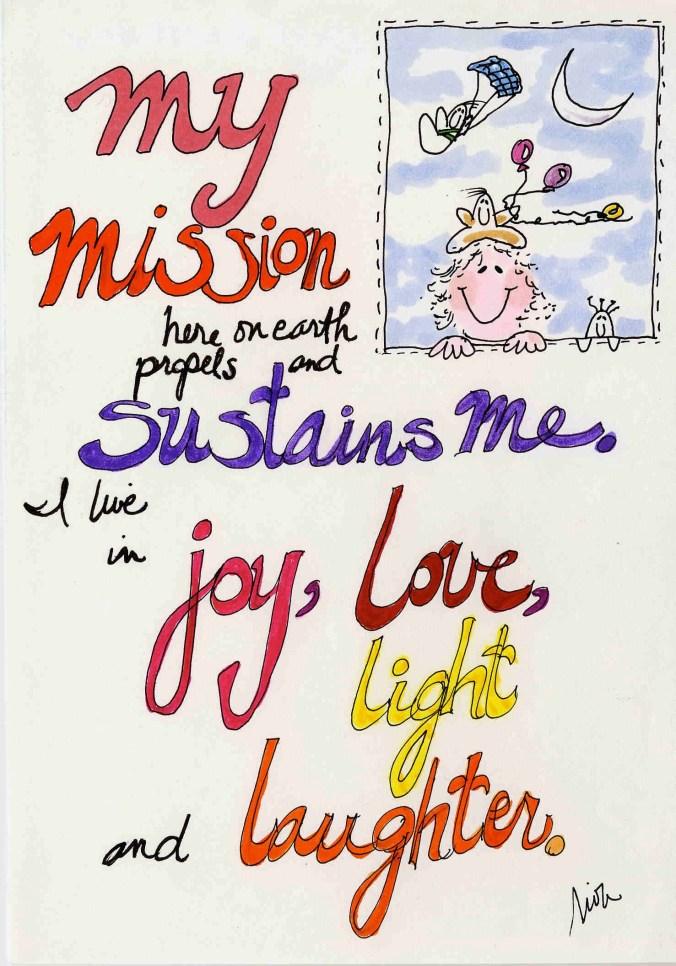 my
mission
here on earth
propels and
sustains me.
I live
in joy, love,
light
and laughter.